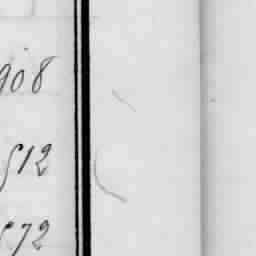 908
512
572